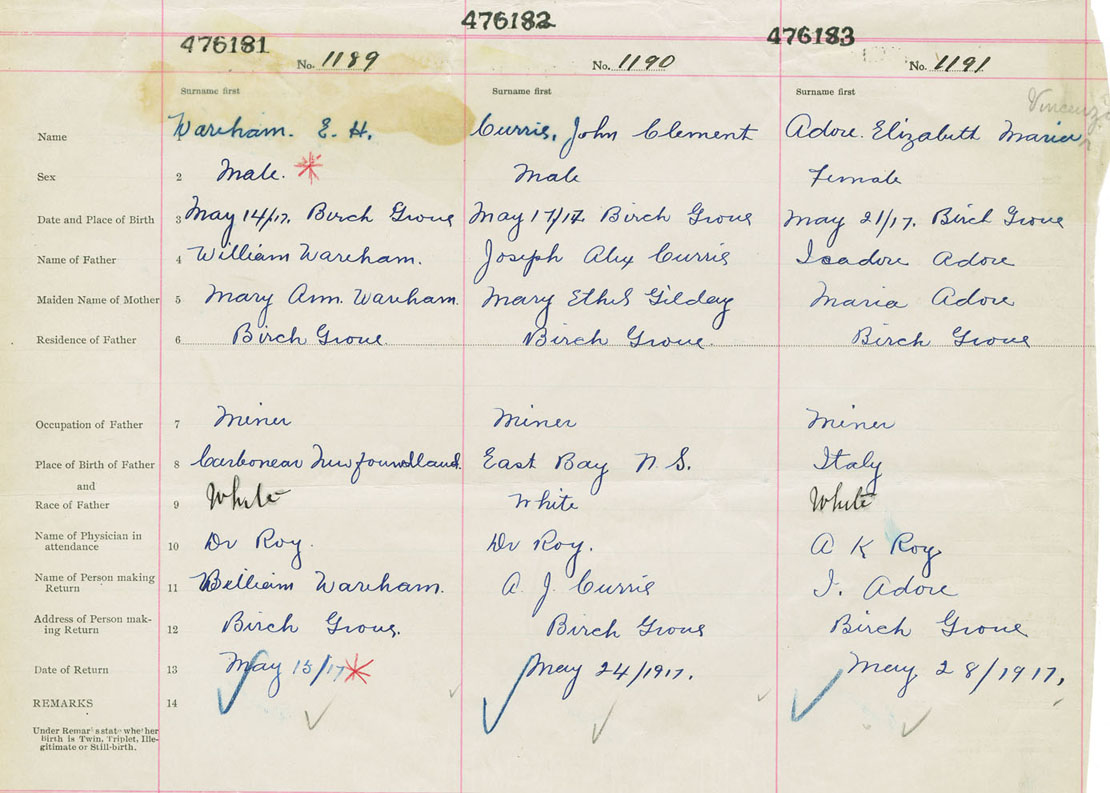 476181 476182 476183
No. 1189 No. 1190 No. 1191
Surname first Surname first Surname first
Vincenza
Name 1 Wareham. E. H. Currie, John Clement Adore. Elizabeth Maria
Sex 2 Male. Male Female
Date and Place of Birth 3 May 14/17. Birch Grove May 17/17. Birch Grove May 21/17. Birch Grove
Name of Father 4 William Wareham. Joseph Alex Currie Isadore Adore
Maiden Name of Mother 5 Mary Ann. Wareham. Mary Ethel Gilday Maria Adore
Residence of Father 6 Birch Grove. Birch Grove. Birch Grove
Occupation of Father 7 Miner Miner Miner
Place of Birth of Father 8 Carbonear Newfoundland. East Bay N. S. Italy
and
Race of Father 9 White White White
Name of Physician in
attendance 10 Dr Roy. Dr Roy. A K Roy
Name of Person making
Return 11 William Wareham. A. J. Currie I. Adore
Address of Person mak-
ing Return 12 Birch Grove. Birch Grove Birch Grove
Date of Return 13 May 15/17 May 24/1917. May 28/1917.
REMARKS 14
Under Remarks state whether
Birth is Twin, Triplet, Ille-
gitimate or Still-birth.